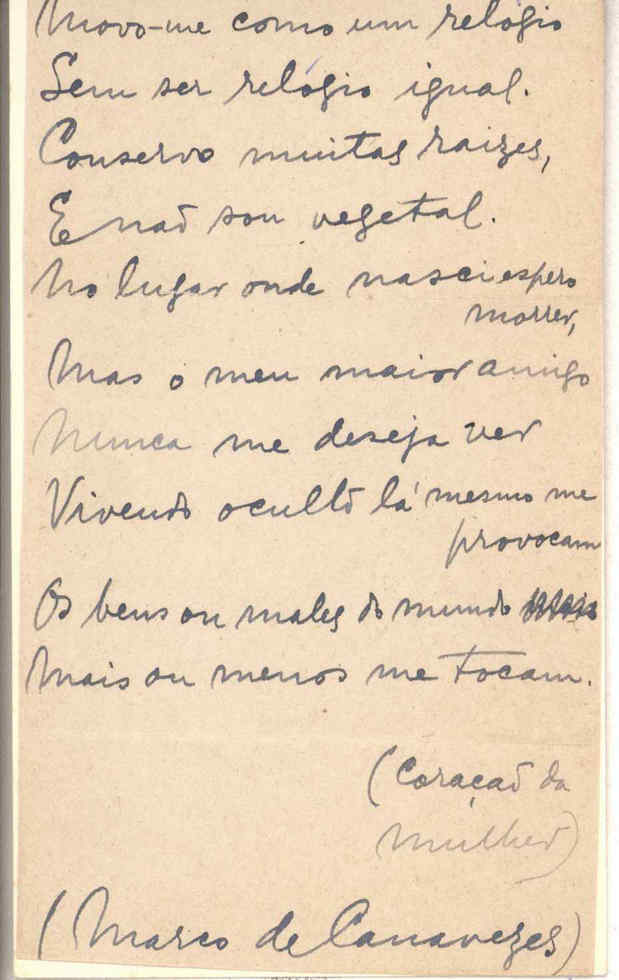 Movo-me como um relógio
Sem ser relógio igual.
Conservo muitas raizes,
E não sou vegetal.
No lugar onde nasci espero
morrer,
Mas o meu maior amigo
Nunca me deseja ver
Vivendo oculto lá mesmo me
provocam
Os bens ou males do mundo
Mais ou menos me tocam.
(Coração da
mulher)
(Marco de Canavezes)